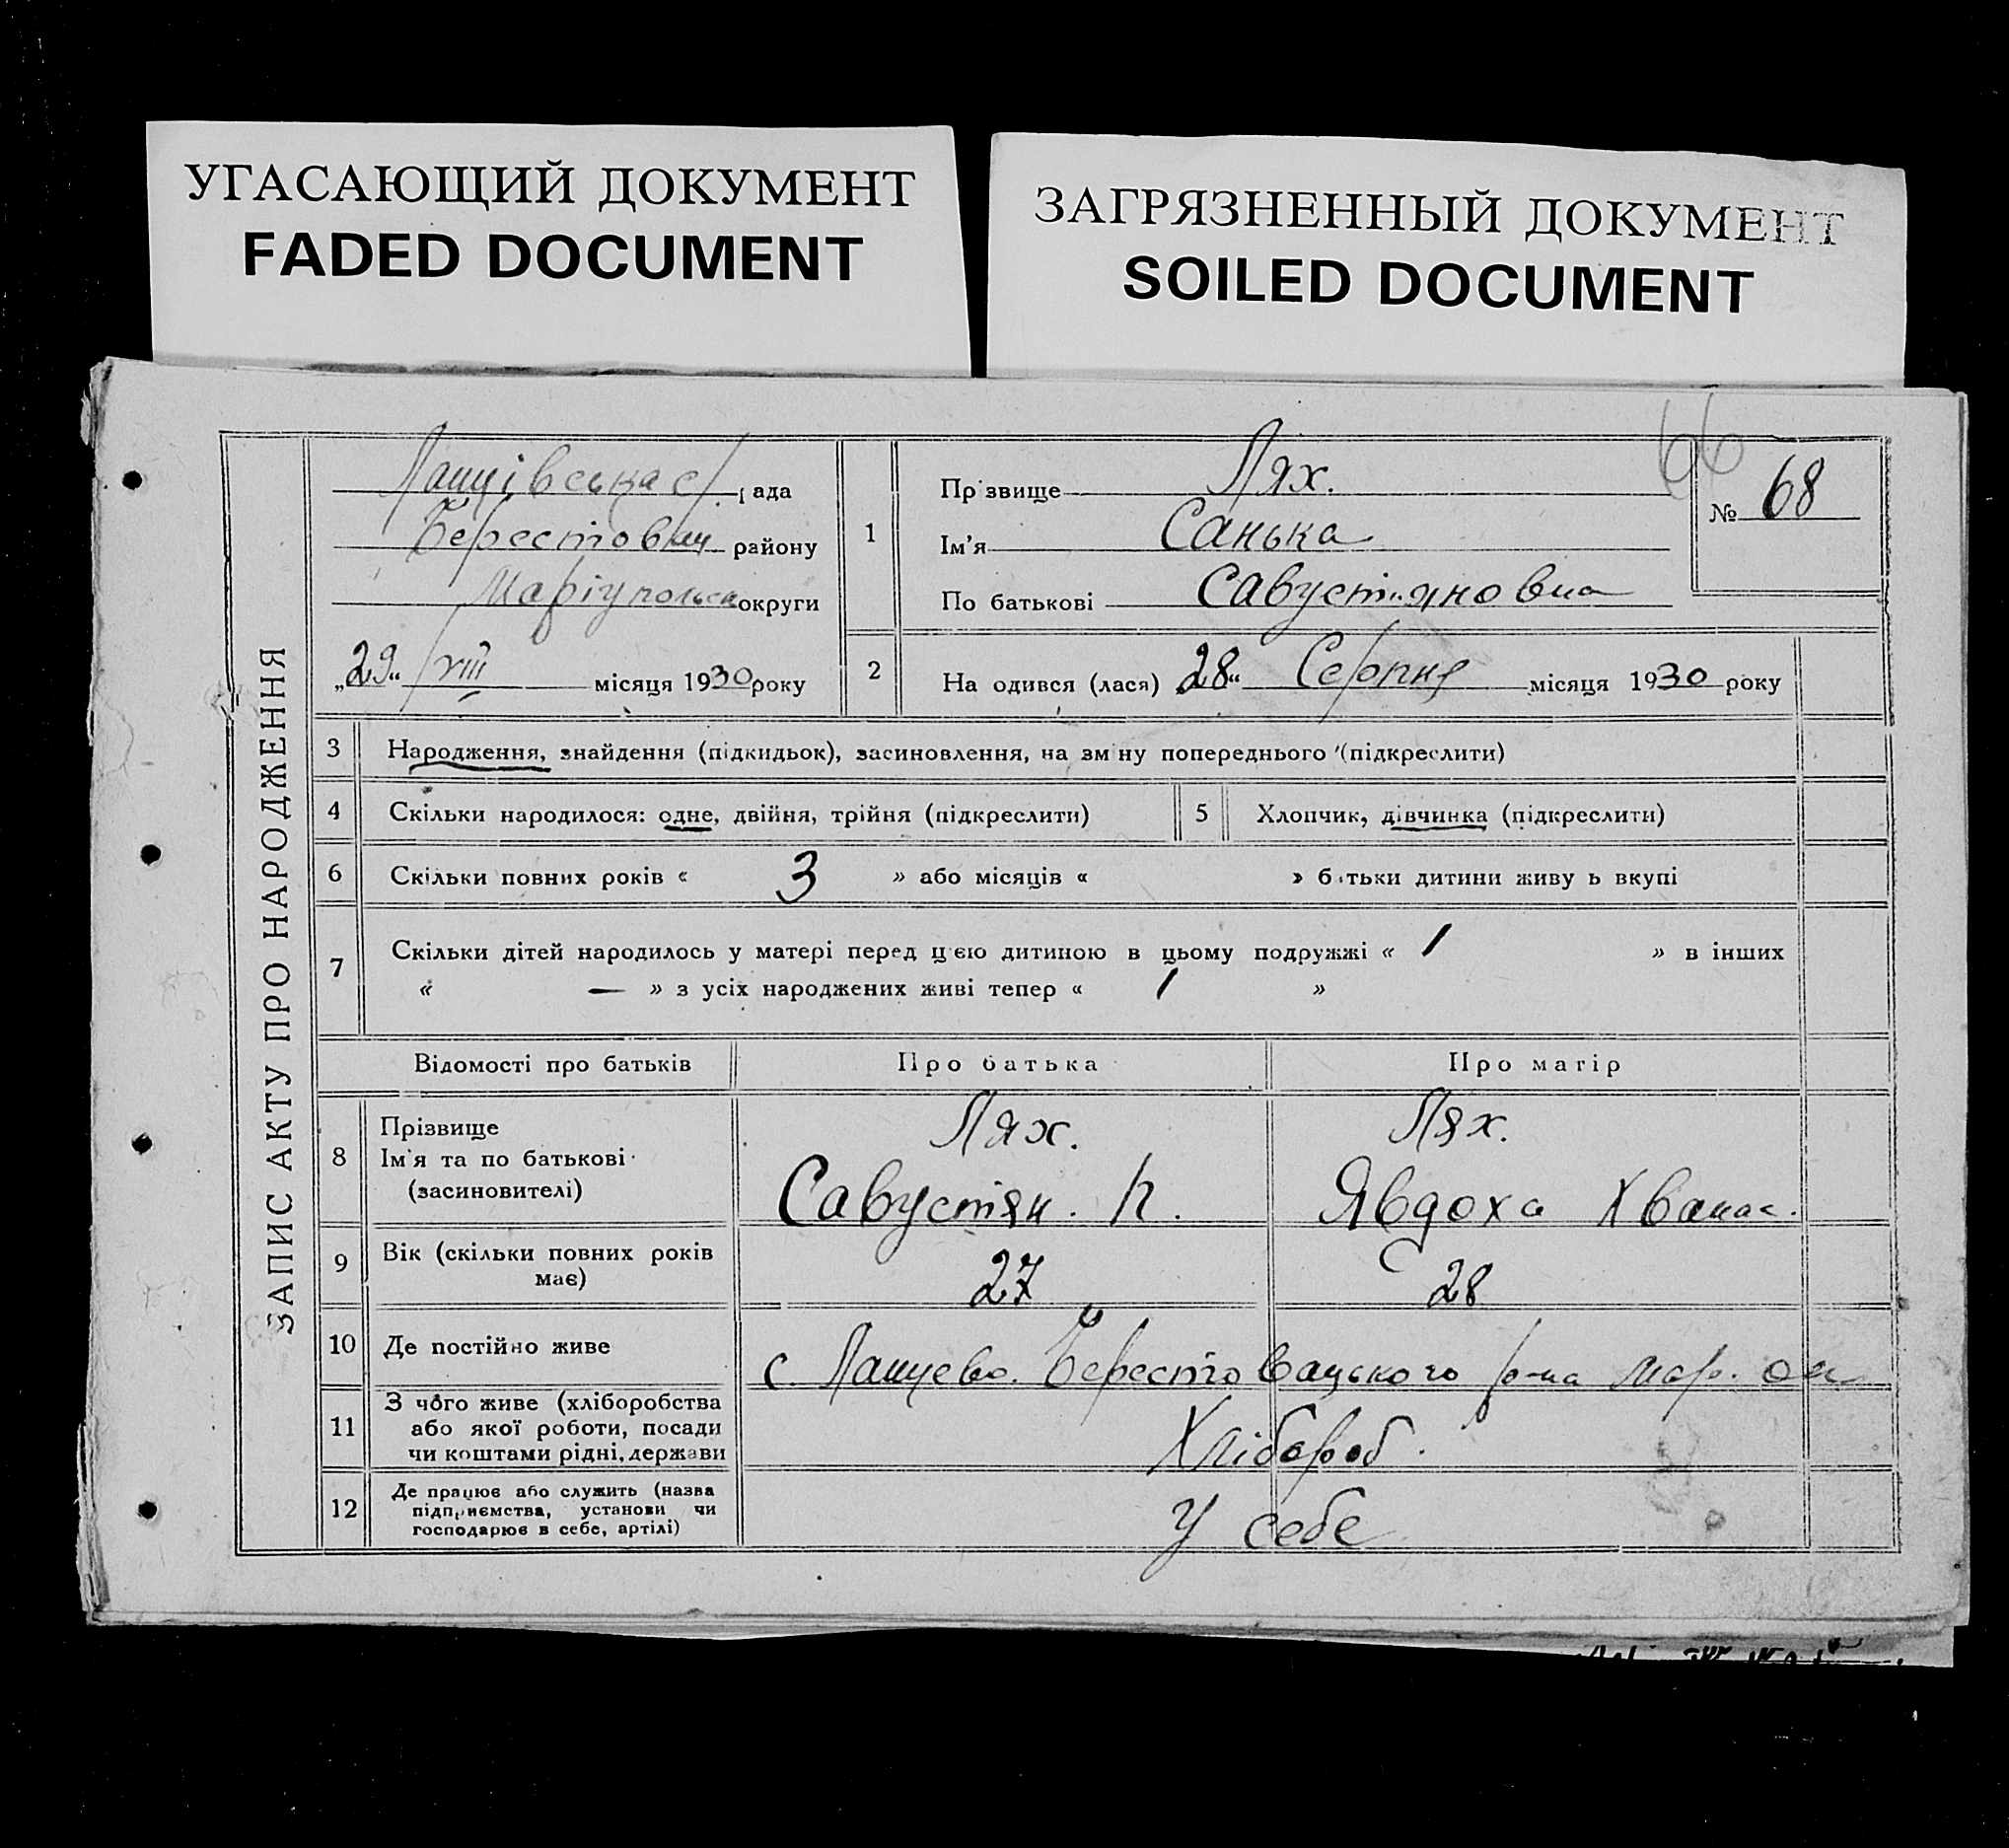 УГАСАЮЩИЙ ДОКУМЕНТ
FADED DOCUMENT
ЗАГРЯЗНЕННЫЙ ДОКУМЕНТ
SOILED DOCUMENT
66
ЗАПИС АКТУ ПРО НАРОДЖЕННЯ
Ланцівська с/рада
Берестовец району
Маріупольськ округи
„29“ VIII місяця 1930 року
1
Прізвище Лях.
Ім'я Санька
По батькові Савустіяновна
№ 68
2 На одився (лася) „28“ Серпня місяця 1930 року
3 Народження, знайдення (підкидьок), засиновлення, на зміну попереднього (підкреслити)
4 Скільки народилося: одне, двійня, трійня (підкреслити)
5 Хлопчик, дівчинка (підкреслити)
6 Скільки повних років « 3 » або місяців « » батьки дитини живуть вкупі
7 Скільки дітей народилось у матері перед цією дитиною в цьому подружжі « 1 » в інших
« — » з усіх народжених живі тепер « 1 »
Відомості про батьків Про батька Про матір
8 Прізвище
Ім'я та по батькові
(засиновителі)
Лях.
Савустян. П.
Лях.
Явдоха Хванас.
9 Вік (скільки повних років
має)
27 28
10 Де постійно живе с. Ланцево. Берестовацького р-на Мар. ок
11 З чого живе (хліборобства
або якої роботи, посади
чи коштами рідні, держави
Хлібороб.
12 Де працює або служить (назва
підприємства, установи чи
господарює в себе, артілі)
У себе